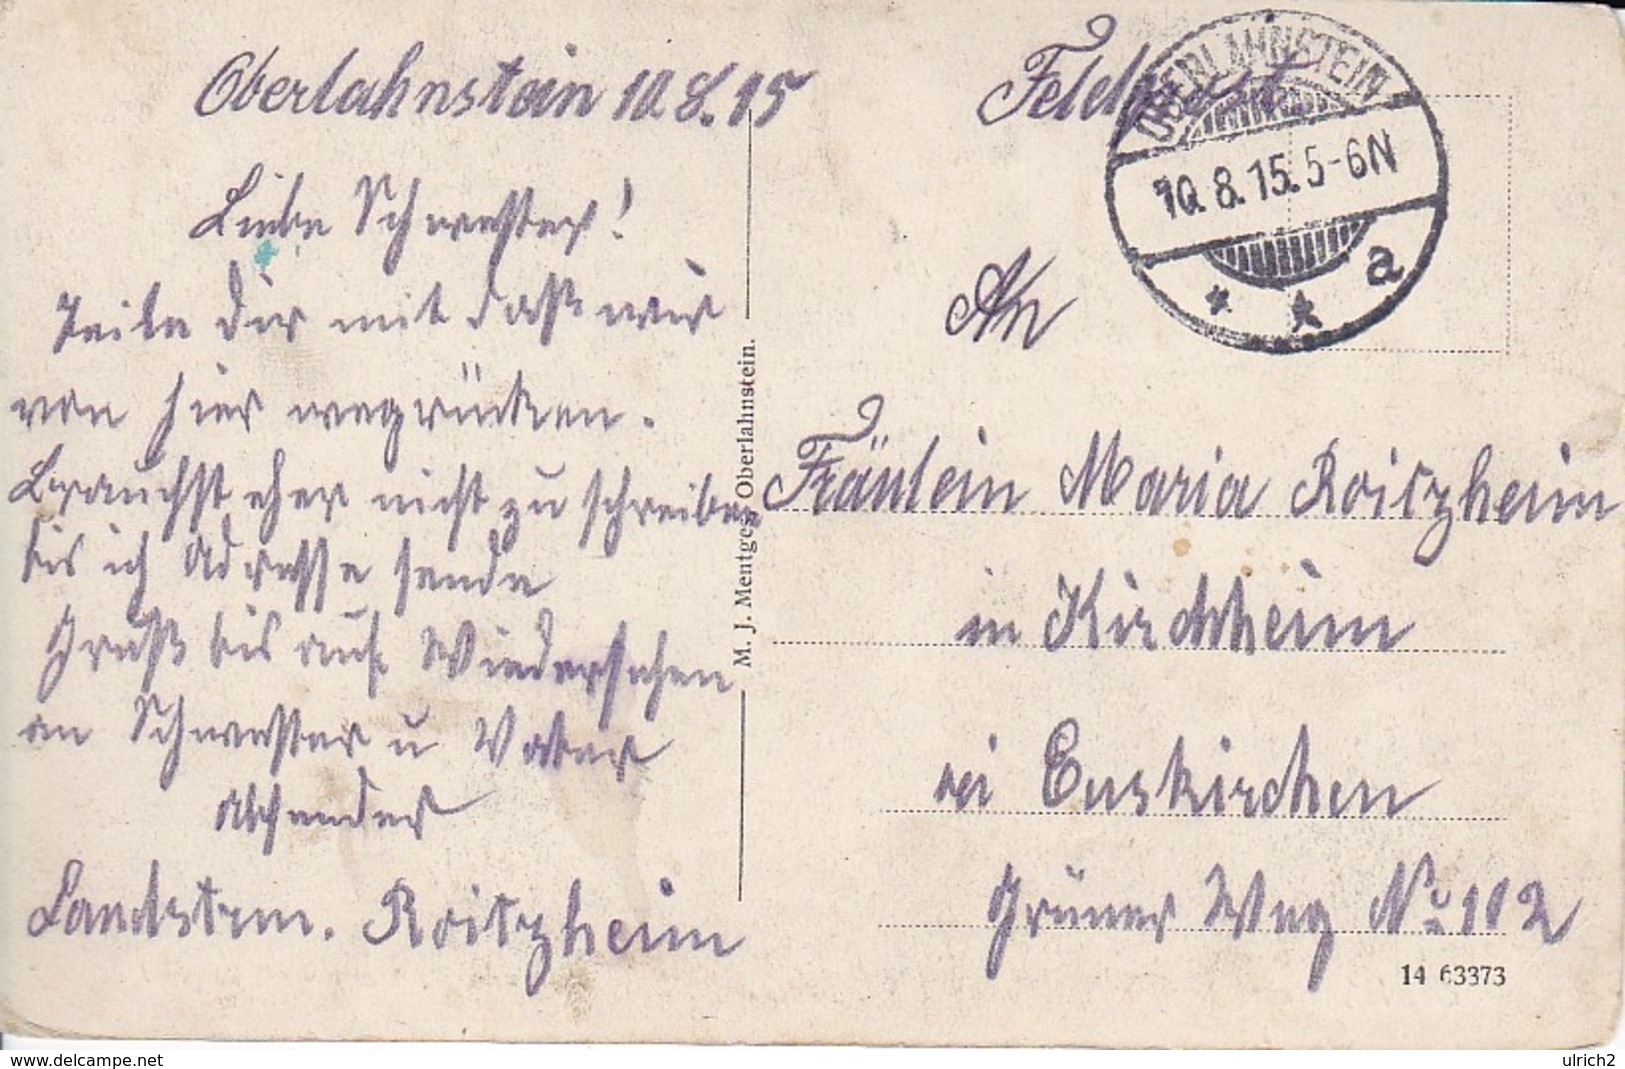 Oberlahnstein 10.8.15
Liebe Schwester!
Teile dir mit daß wir
von hier wegrücken.
Brauchst eher nicht zu schreiben
bis ich Adresse sende
Gruß bis auf Wiedersehen
an Schwester u Vater
Absender
Landstrm. Roitzheim
M. J. Mentges Oberlahnstein.
Feldpost
OBERLAHNSTEIN
10.8.15.5-6N
* * a
An
Fräulein Maria Roitzheim
in Kirchheim
bei Euskirchen
Grüner Weg No 102
14 63373
www.delcampe.net
ulrich2